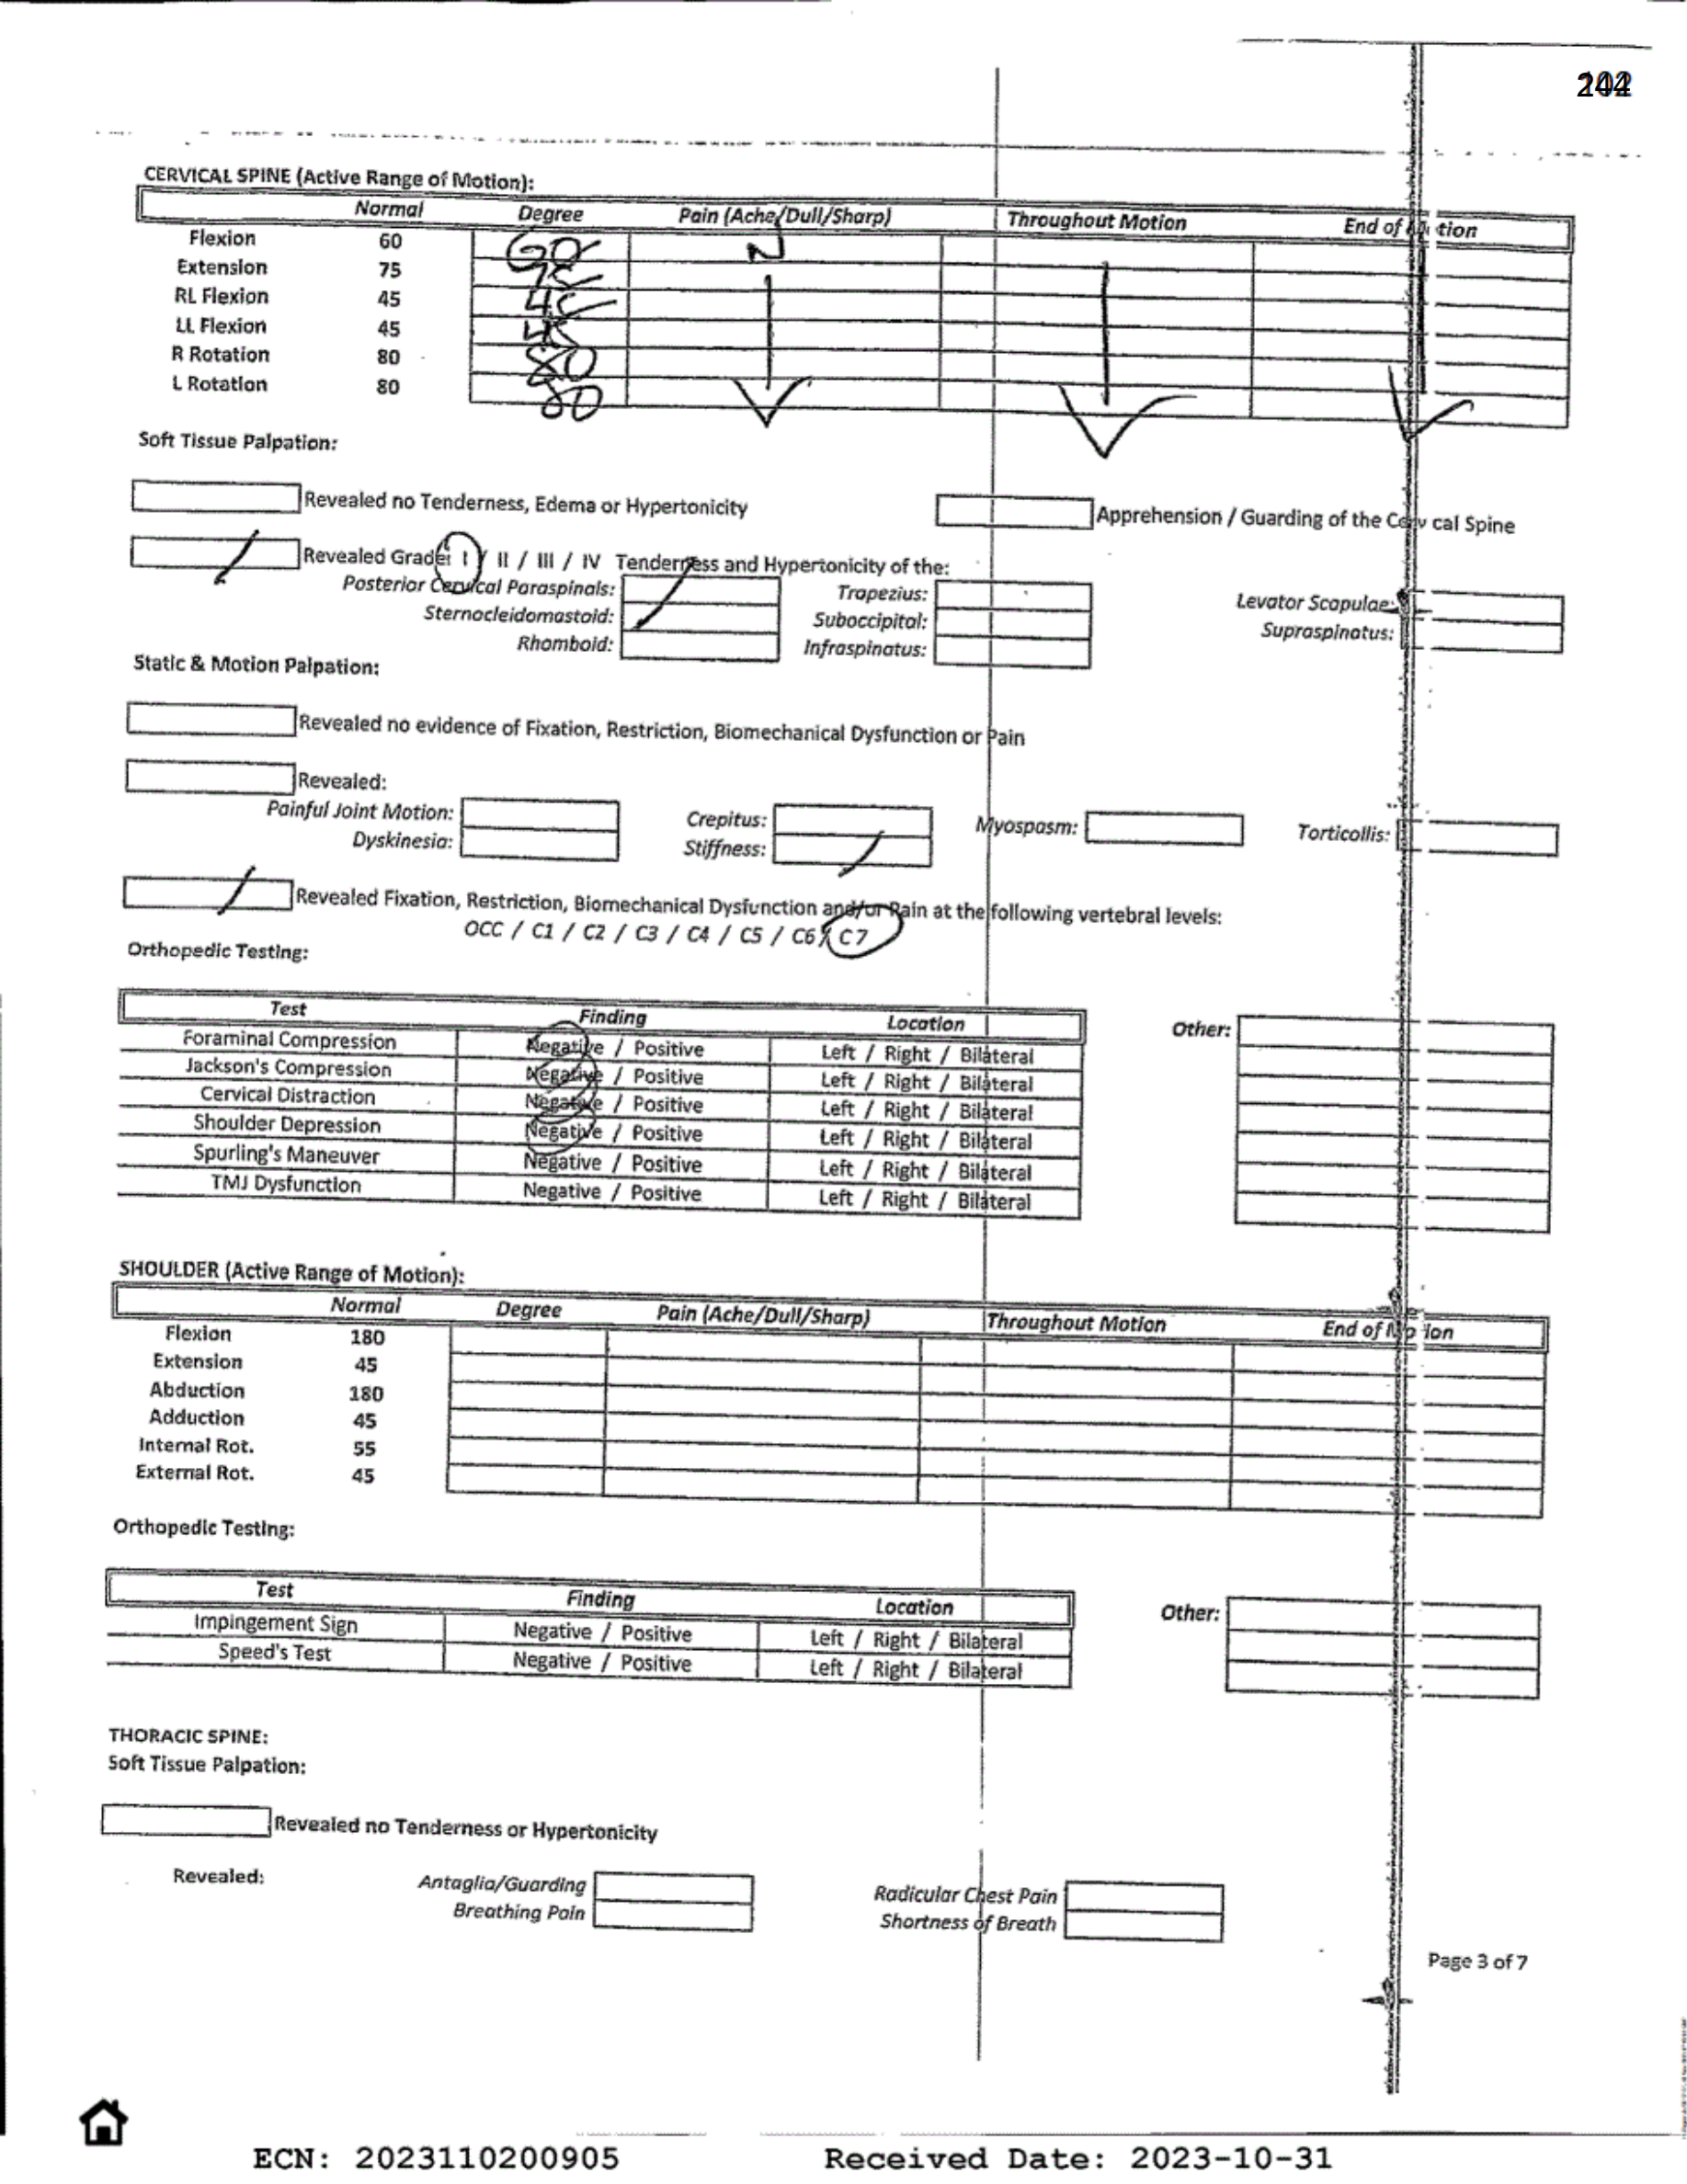 CERVICAL SPINE (Active Range of Motion):
Normal Degree Pain (Ache/Dull/Sharp) Throughout Motion End of Motion
Flexion 60 60 N
Extension 75 75
RL Flexion 45 45
LL Flexion 45 45
R Rotation 80 80
L Rotation 80 80
Soft Tissue Palpation:
Revealed no Tenderness, Edema or Hypertonicity Apprehension / Guarding of the Cervical Spine
Revealed Grade: I / II / III / IV Tenderness and Hypertonicity of the:
Posterior Cervical Paraspinals: Trapezius: Levator Scapulae:
Sternocleidomastoid: Suboccipital: Supraspinatus:
Rhomboid: Infraspinatus:
Static & Motion Palpation:
Revealed no evidence of Fixation, Restriction, Biomechanical Dysfunction or Pain
Revealed:
Painful Joint Motion: Crepitus: Myospasm: Torticollis:
Dyskinesia: Stiffness:
Revealed Fixation, Restriction, Biomechanical Dysfunction and/or Pain at the following vertebral levels:
OCC / C1 / C2 / C3 / C4 / C5 / C6 / C7
Orthopedic Testing:
Test Finding Location Other:
Foraminal Compression Negative / Positive Left / Right / Bilateral
Jackson's Compression Negative / Positive Left / Right / Bilateral
Cervical Distraction Negative / Positive Left / Right / Bilateral
Shoulder Depression Negative / Positive Left / Right / Bilateral
Spurling's Maneuver Negative / Positive Left / Right / Bilateral
TMJ Dysfunction Negative / Positive Left / Right / Bilateral
SHOULDER (Active Range of Motion):
Normal Degree Pain (Ache/Dull/Sharp) Throughout Motion End of Motion
Flexion 180
Extension 45
Abduction 180
Adduction 45
Internal Rot. 55
External Rot. 45
Orthopedic Testing:
Test Finding Location Other:
Impingement Sign Negative / Positive Left / Right / Bilateral
Speed's Test Negative / Positive Left / Right / Bilateral
THORACIC SPINE:
Soft Tissue Palpation:
Revealed no Tenderness or Hypertonicity
Revealed: Antaglia/Guarding Radicular Chest Pain
Breathing Pain Shortness of Breath
Page 3 of 7
ECN: 2023110200905 Received Date: 2023-10-31